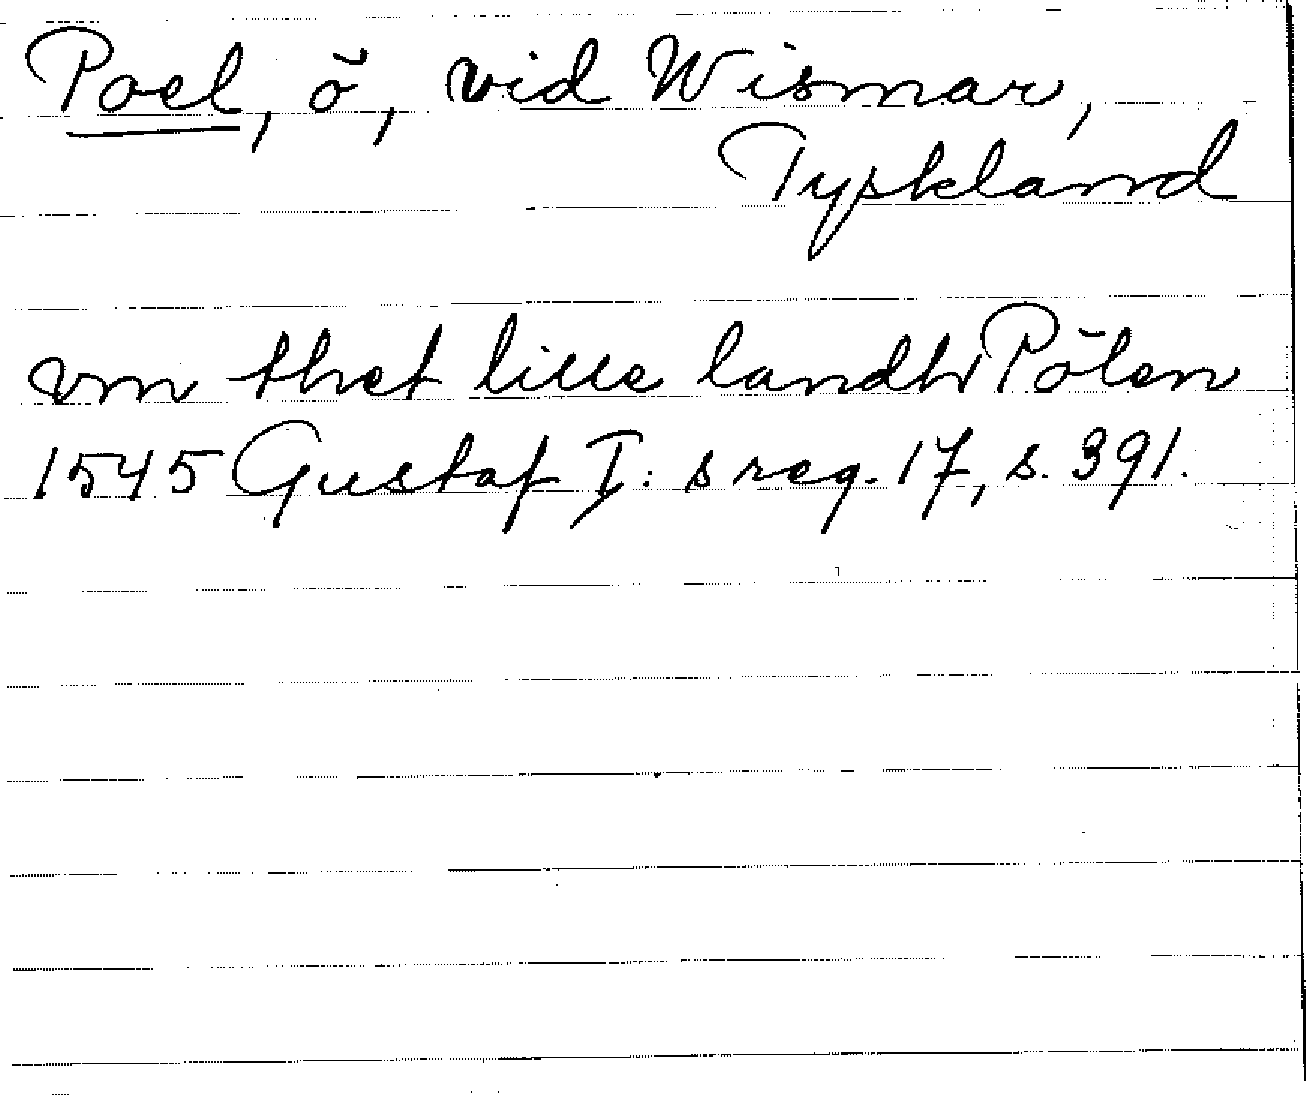 Poel, ö, vid Wismar,
Tyskland
vm thet lille landh Pölen
1545 Gustaf I:s reg. 17, s. 391.